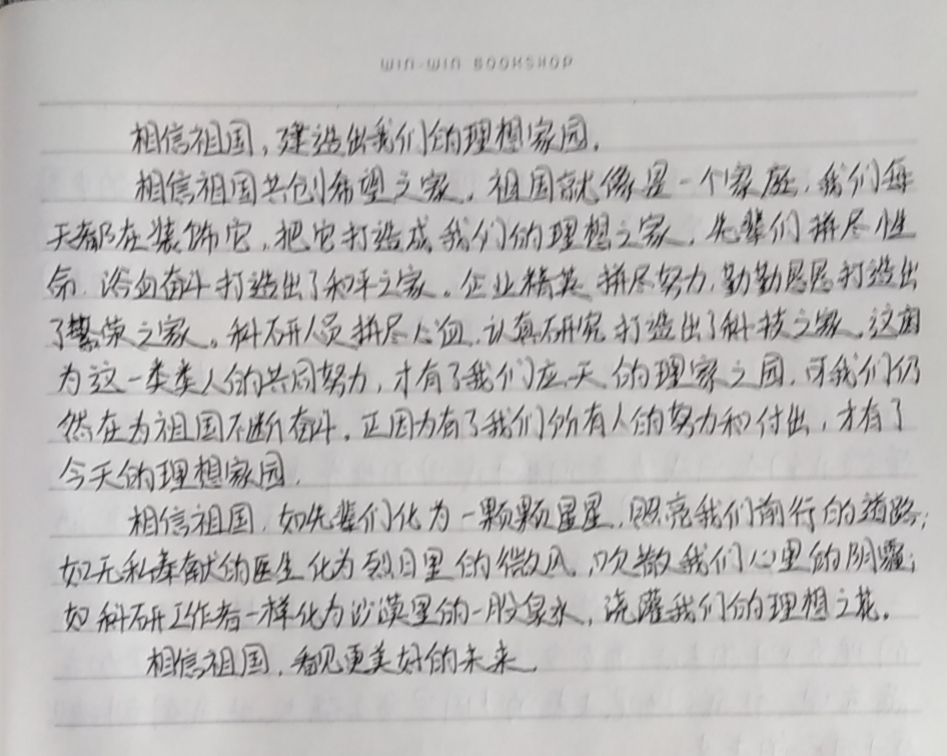 WIN-WIN BOOKSHOP
相信祖国，建造出我们的理想家园。
相信祖国共创希望之家。祖国就像是一个家庭，我们每
天都在装饰它，把它打造成我们的理想之家。先辈们拼尽性
命，浴血奋斗打造出了和平之家。企业精英拼尽努力，勤勤恳恳打造出
了繁荣之家。科研人员拼尽心血，认真研究打造出了科技之家。这因
为这一类类人的共同努力，才有了我们应天的理家之园，可我们仍
然在为祖国不断奋斗。正因为有了我们所有人的努力和付出，才有了
今天的理想家园。
相信祖国，如先辈们化为一颗颗星星，照亮我们前行的道路；
如无私奉献的医生化为烈日里的微风，吹散我们心里的阴霾；
如科研工作者一样化为沙漠里的一股泉水，浇灌我们的理想之花。
相信祖国，看见更美好的未来。